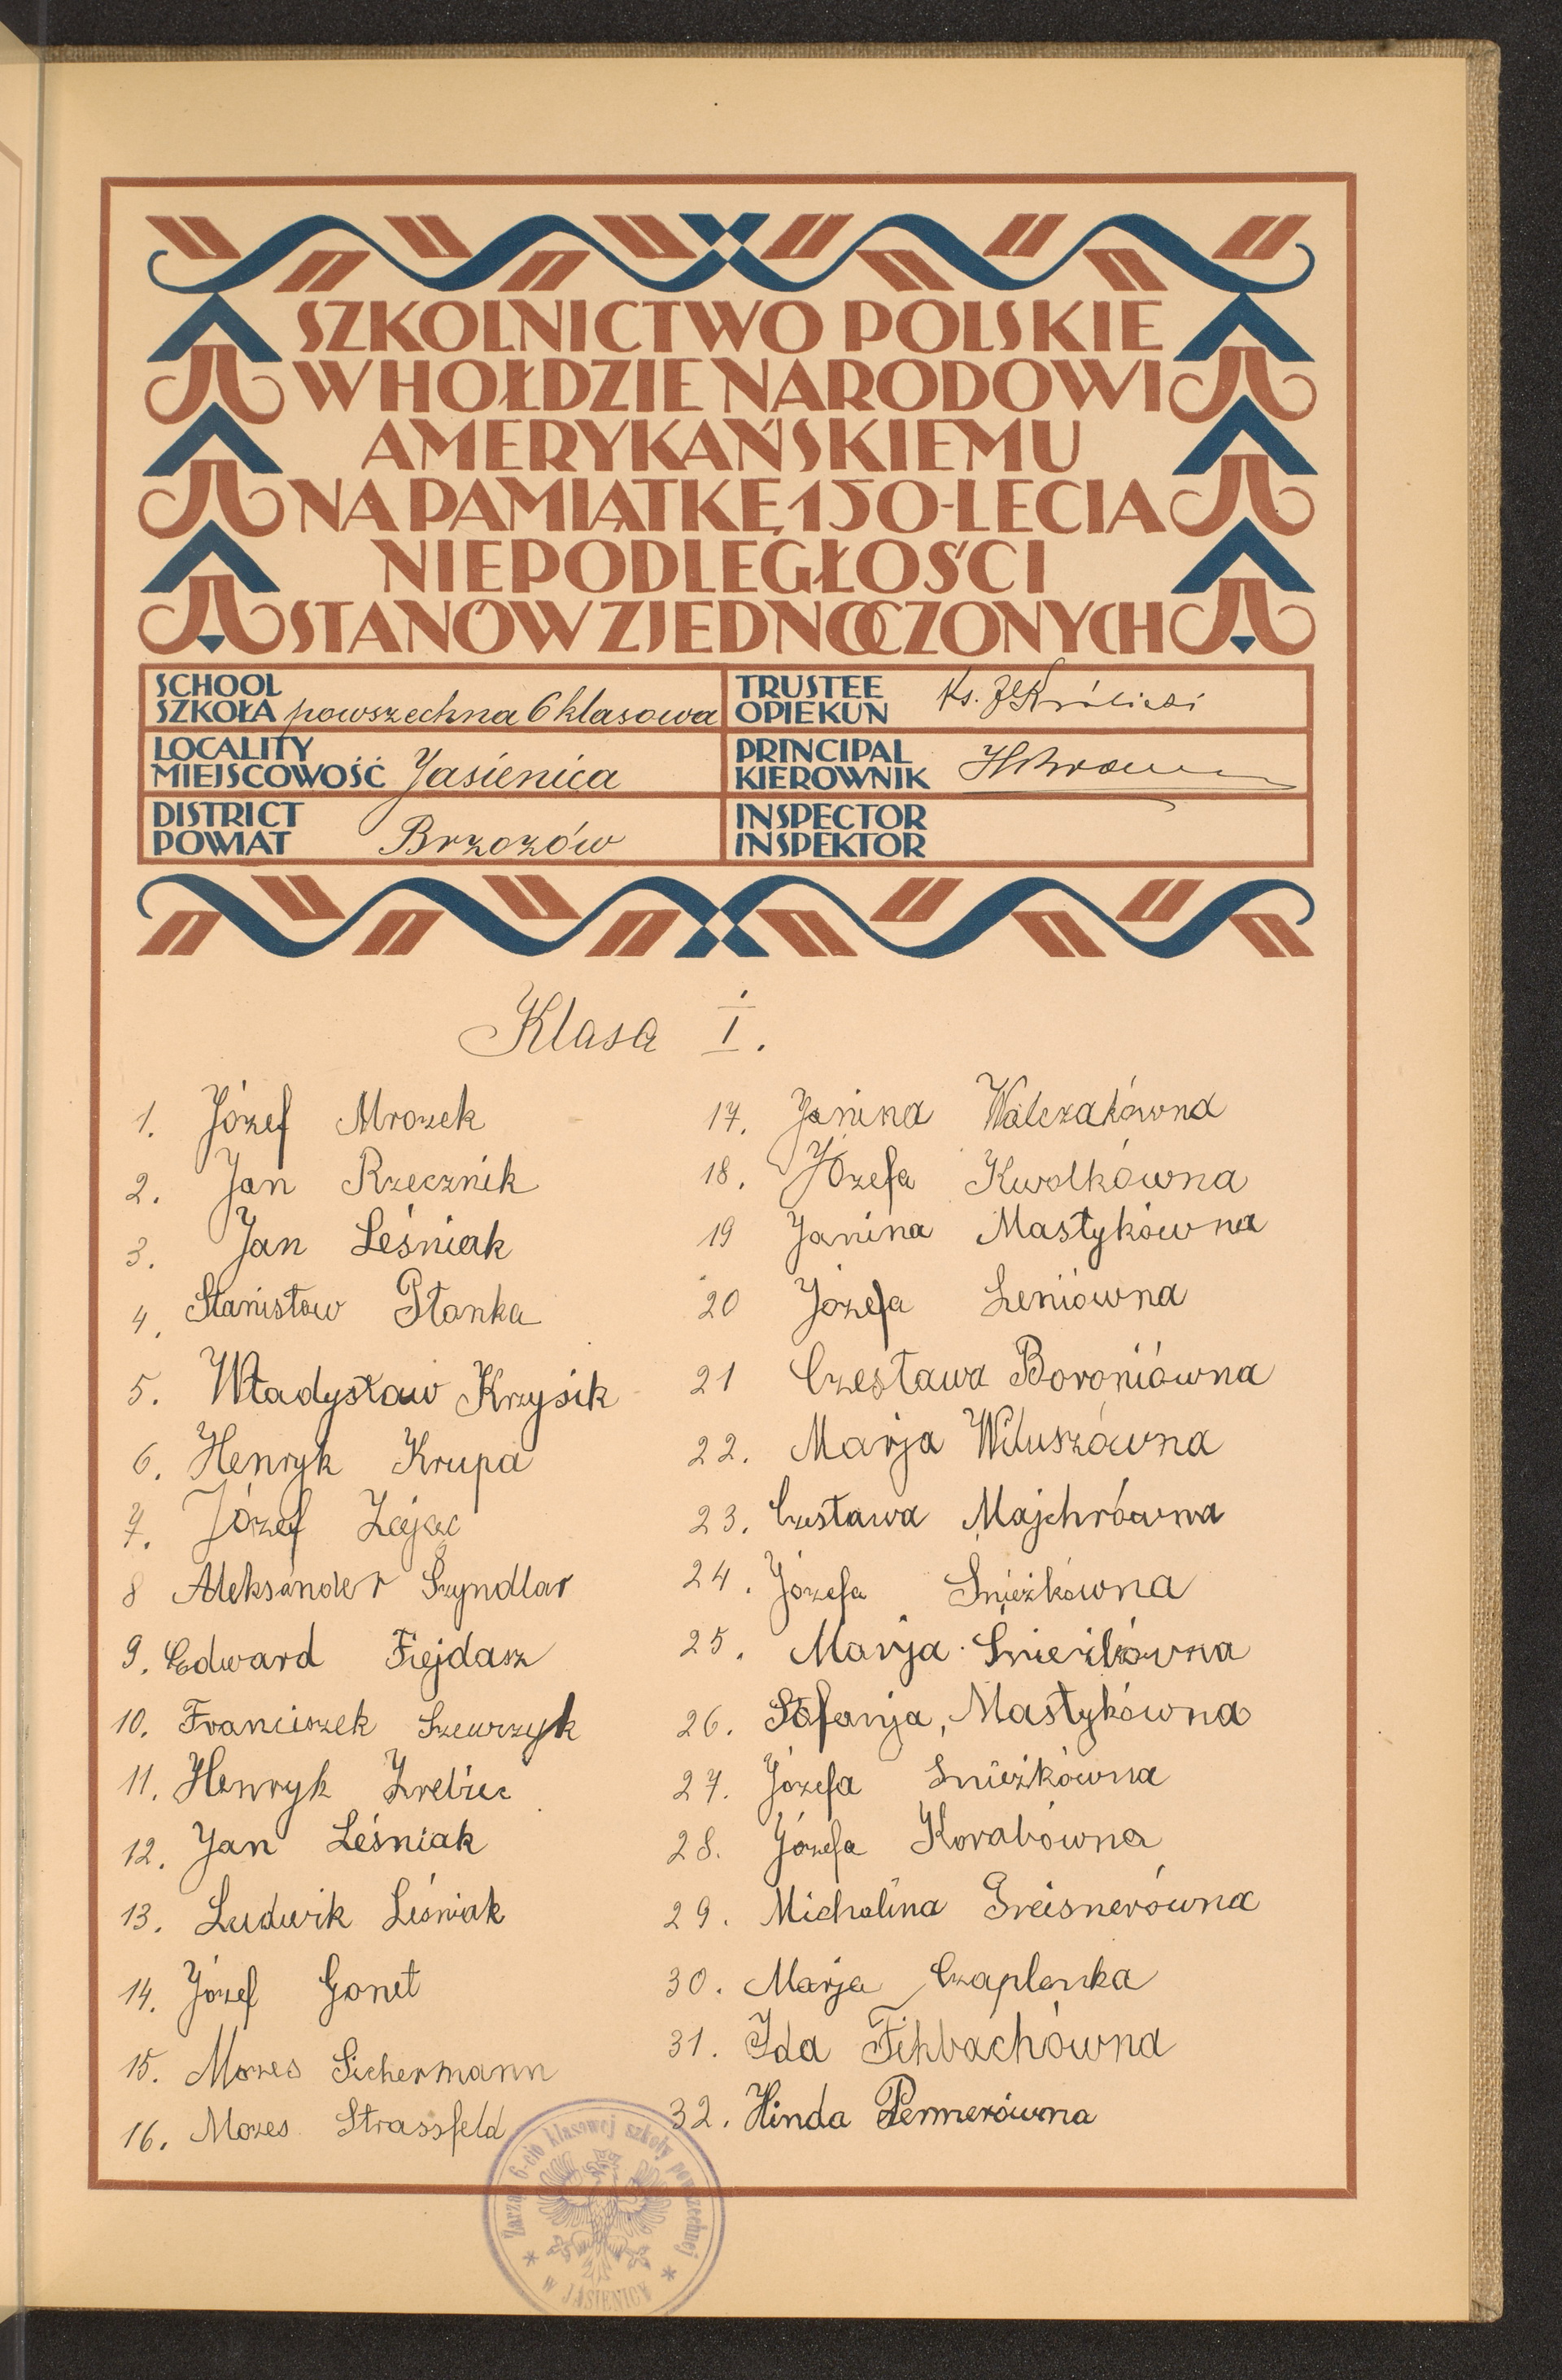 SZKOLNICTWO POLSKIE
W HOŁDZIE NARODOWI
AMERYKAŃSKIEMU
NA PAMIĄTKĘ 150-LECIA
NIEPODLEGŁOŚCI
STANÓW ZJEDNOCZONYCH
SCHOOL
SZKOŁA powszechna 6 klasowa
TRUSTEE
OPIEKUN Ks.
LOCALITY
MIEJSCOWOŚĆ Jasienica
PRINCIPAL
KIEROWNIK
DISTRICT
POWIAT Brzozów
INSPECTOR
INSPEKTOR
Klasa I.
1. Józef Mrozek
2. Jan Rzecznik
3. Jan Leśniak
4. Stanisław Płonka
5. Władysław Krzysik
6. Henryk Krupa
7. Józef Zając
8 Aleksander Szyndlar
9. Edward Fiejdasz
10. Franciszek Szewczyk
11. Henryk Źrebiec
12. Jan Leśniak
13. Ludwik Leśniak
14. Józef Gonet
15. Mozes Sichermann
16. Mozes Strassfeld
17. Janina Walczakówna
18. Józefa Kwolkówna
19 Janina Mastykówna
20 Józefa Leniówna
21 Czesława Boroniówna
22. Marja Wiluszówna
23. Czesława Majchrówna
24. Józefa Śnieżkówna
25. Marja Śnieżkówna
26. Stefanja, Mastykówna
27. Józefa Śnieżkówna
28. Józefa Korabówna
29. Michalina Greisnerówna
30. Marja Czaplonka
31. Ida Fihbachówna
32. Hinda Pennerówna
Zarząd 6-cio klasowej szkoły powszechnej
W JASIENICY